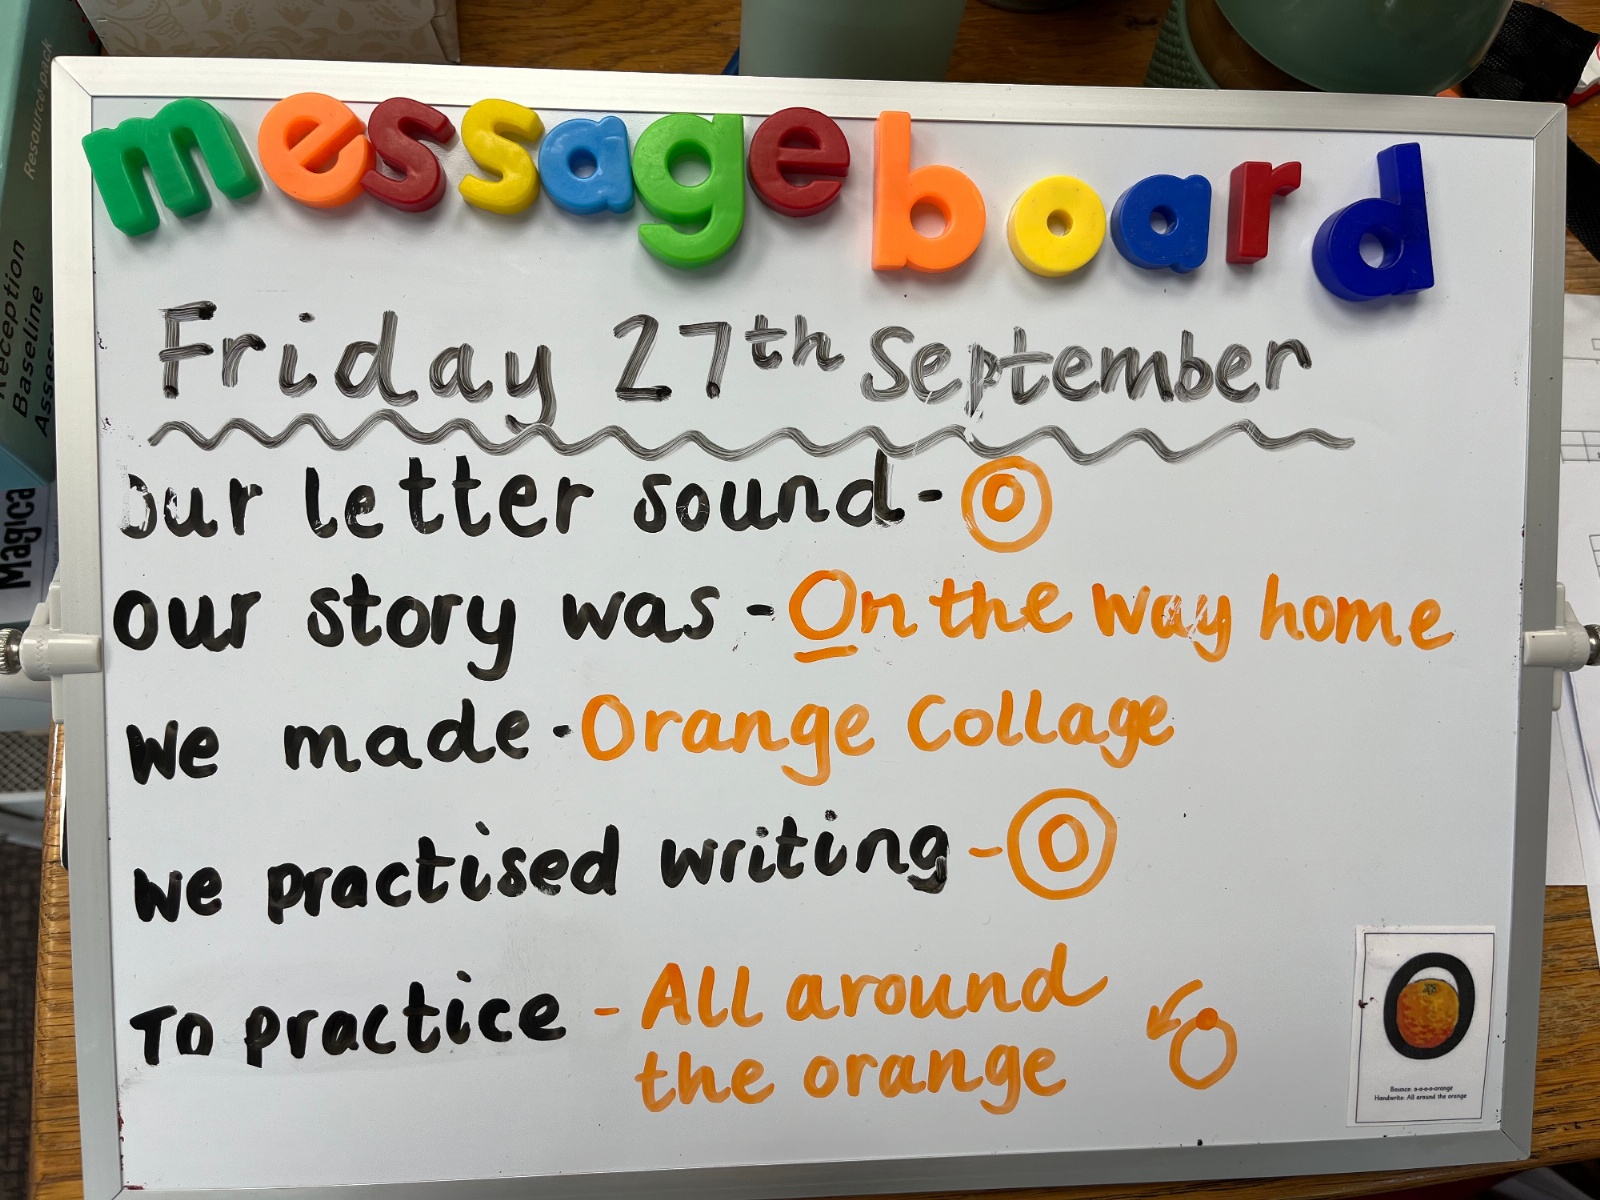 messageboard
Friday 27th September
Our letter sound - o
Our story was - On the way home
We made - Orange Collage
We practised writing - o
To practice - All around
the orange
Bounce: o-o-o-o-orange
Handwrite: All around the orange
Resource pack
Reception
Baseline
Magica